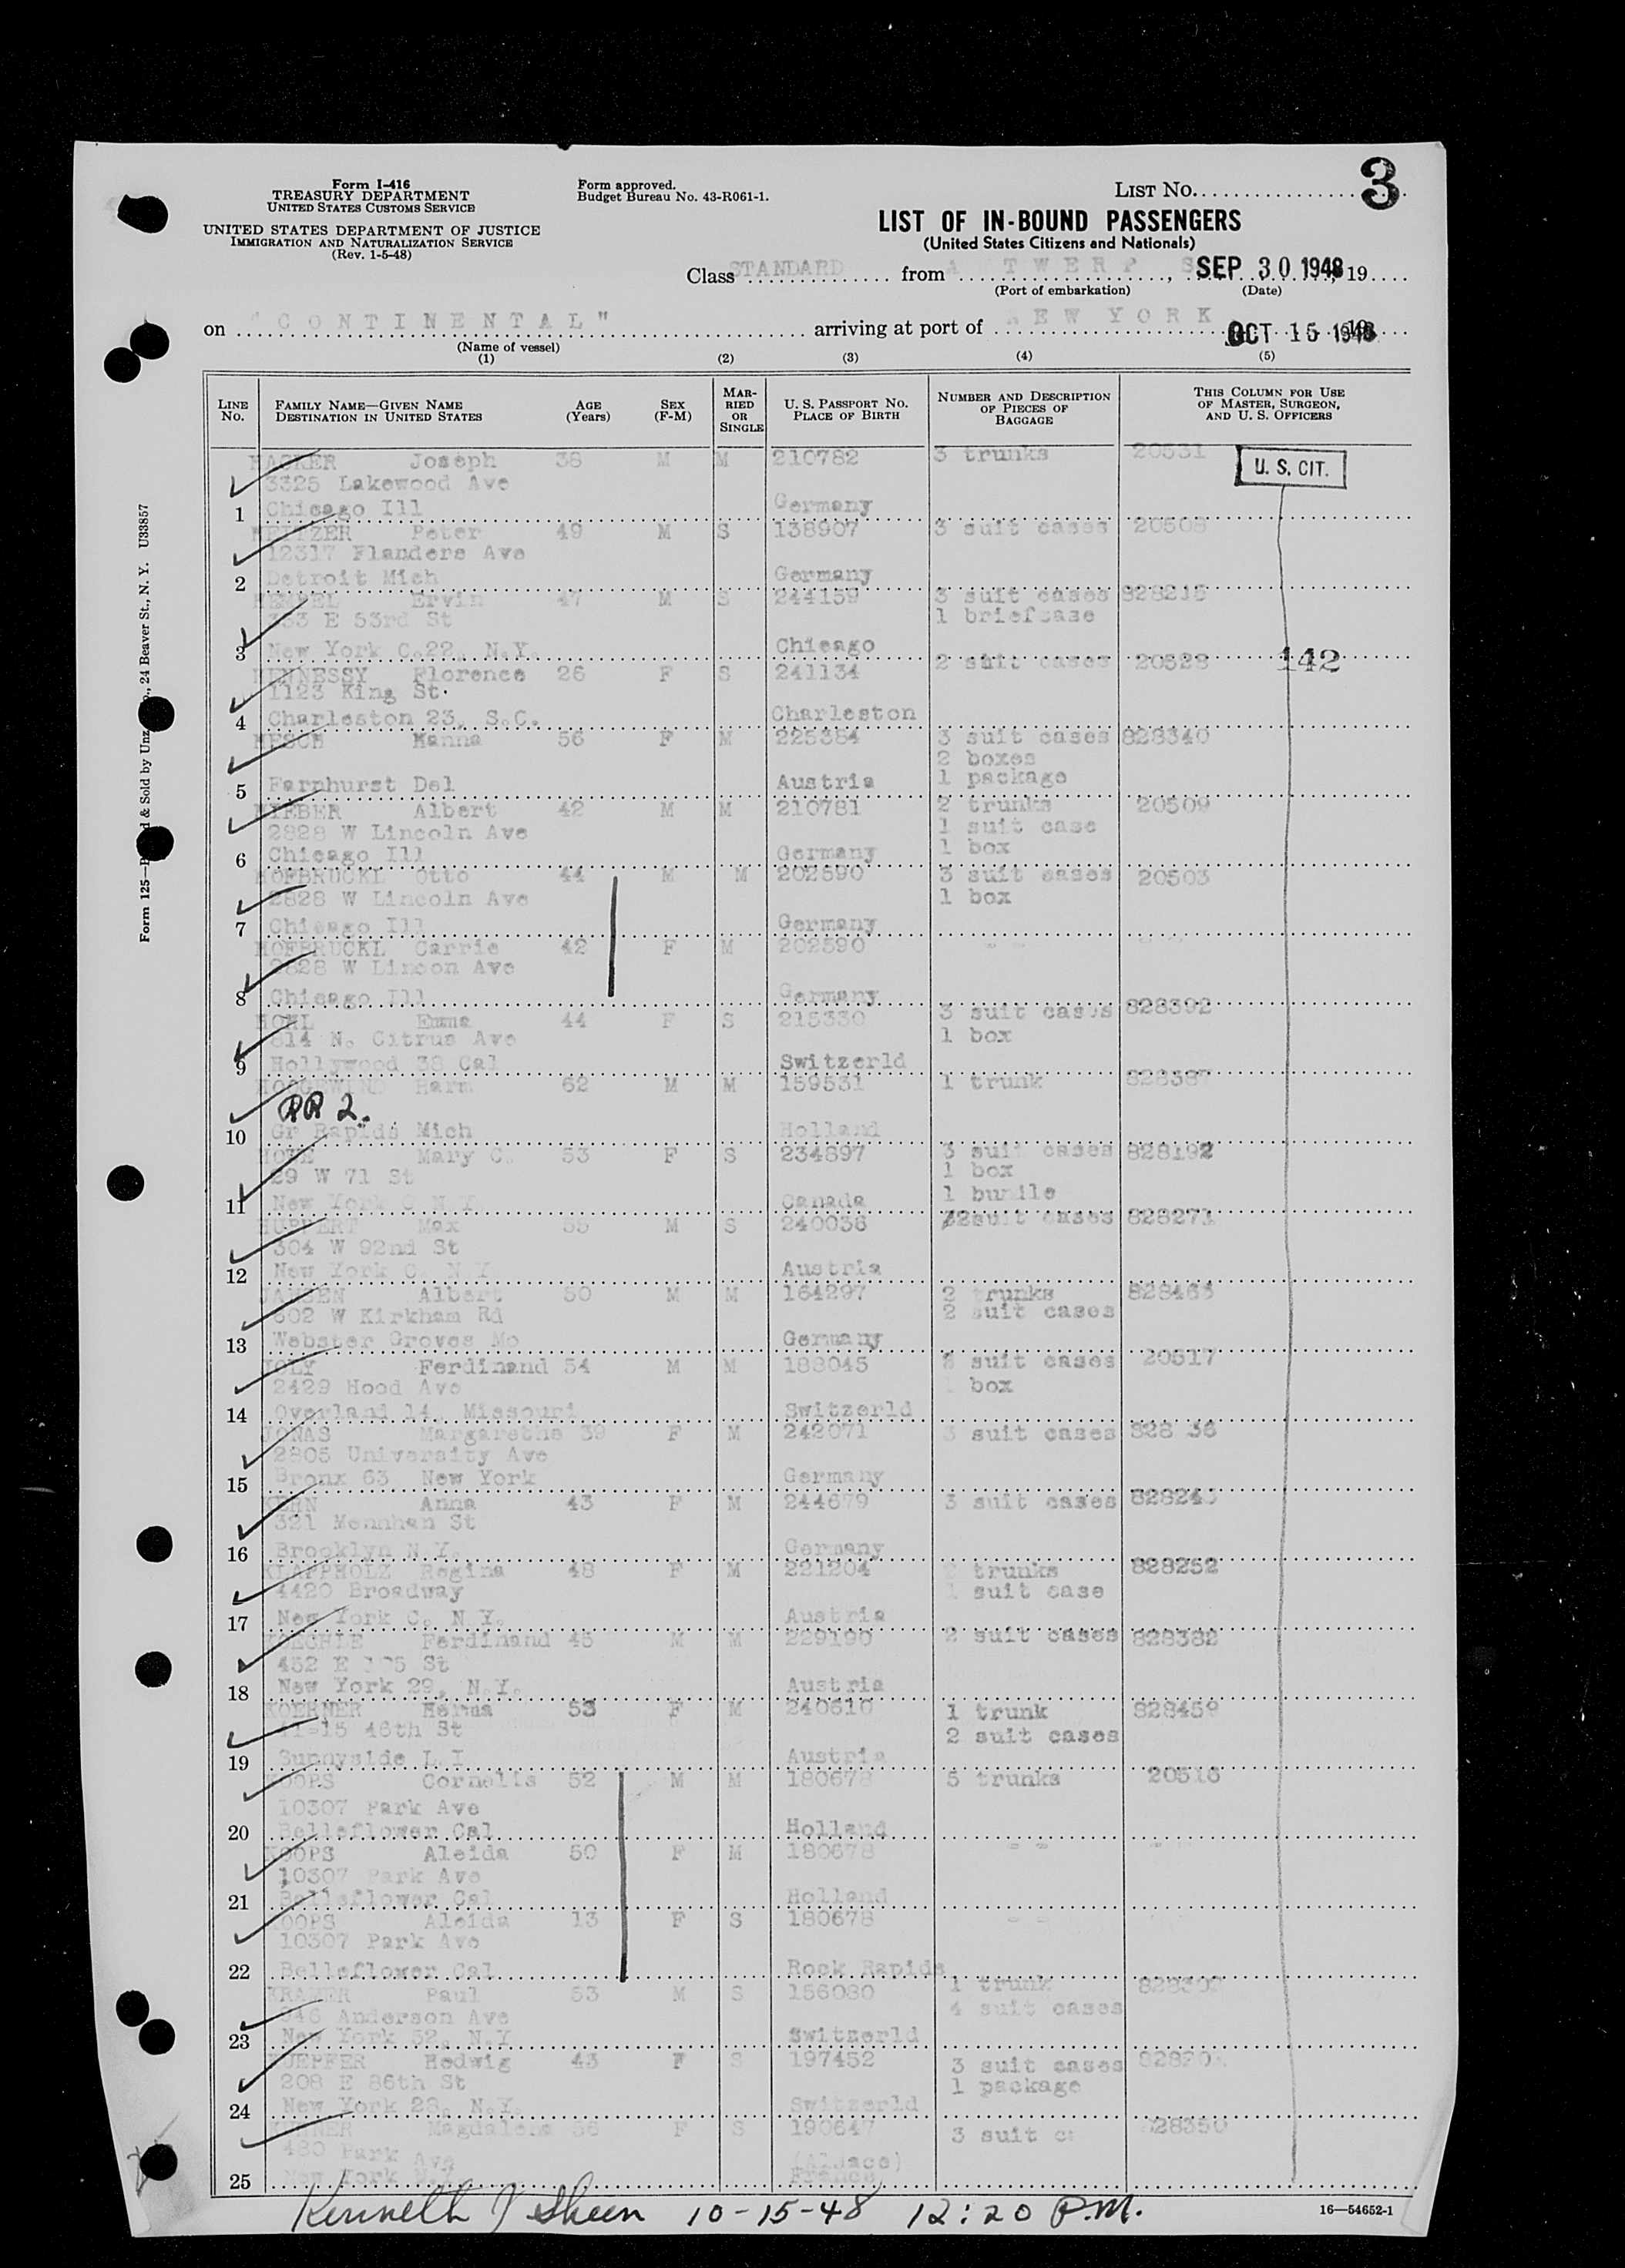 3
Form I-416
TREASURY DEPARTMENT
UNITED STATES CUSTOMS SERVICE
UNITED STATES DEPARTMENT OF JUSTICE
IMMIGRATION AND NATURALIZATION SERVICE
(Rev. 1-5-48)
Form approved.
Budget Bureau No. 43-R061-1.
LIST No.
LIST OF IN-BOUND PASSENGERS
(United States Citizens and Nationals)
Class STANDARD from A TWERP, SEP 30 1948, 19
(Port of embarkation) (Date)
on "CONTINENTAL" arriving at port of NEW YORK OCT 15 1948
(Name of vessel)
(1) (2) (3) (4) (5)
LINE No. FAMILY NAME—GIVEN NAME DESTINATION IN UNITED STATES AGE (Years) SEX (F-M) MARRIED OR SINGLE U. S. PASSPORT No. PLACE OF BIRTH NUMBER AND DESCRIPTION OF PIECES OF BAGGAGE THIS COLUMN FOR USE OF MASTER, SURGEON, AND U. S. OFFICERS
Joseph 38 M M 210782 3 trunks 20531 U. S. CIT.
3325 Lakewood Ave
1 Chicago Ill Germany
Peter 49 M S 138907 3 suit cases 20508
12317 Flanders Ave
2 Detroit Mich Germany
Ervin 47 M S 244159 3 suit cases 828218
333 E 53rd St 1 briefcase
3 New York C.22, N.Y. Chicago
HENNESSY Florence 26 F S 241134 2 suit cases 20528 142
1123 King St.
4 Charleston 23, S.C. Charleston
HESCH Hanna 56 F M 225384 3 suit cases 828340
2 boxes
5 Farnhurst Del Austria 1 package
HIEBER Albert 42 M M 210781 2 trunks 20509
2828 W Lincoln Ave 1 suit case
6 Chicago Ill Germany 1 box
HOFBRUCKL Otto 44 M M 202590 3 suit cases 20503
2828 W Lincoln Ave 1 box
7 Chicago Ill Germany
HOFBRUCKL Carrie 42 F M 202590 - -
2828 W Lincon Ave
8 Chicago Ill Germany
Emma 44 F S 215330 3 suit cases 828392
814 N. Citrus Ave 1 box
9 Hollywood 38 Cal Switzerld
Harm 62 M M 159531 1 trunk 828387
RR 2.
10 Gr Rapids Mich Holland
HOWE Mary C. 53 F S 234897 3 suit cases 828192
29 W 71 St 1 box
11 New York C N.Y. Canada 1 bundle
HUPPERT Max 55 M S 240036 2 suit cases 828271
304 W 92nd St
12 New York C. N.Y. Austria
JANSEN Albert 50 M M 164297 2 trunks 828463
602 W Kirkham Rd 2 suit cases
13 Webster Groves Mo Germany
JOLY Ferdinand 54 M M 188045 suit cases 20517
2429 Hood Ave box
14 Overland 14, Missouri Switzerld
JONAS Margarethe 39 F M 242071 3 suit cases 828 36
2805 University Ave
15 Bronx 63 New York Germany
KERN Anna 43 F M 244679 3 suit cases 828243
321 Mennhan St
16 Brooklyn N.Y. Germany
KLAPPHOLZ Regina 48 F M 221204 2 trunks 828252
4420 Broadway 1 suit case
17 New York C. N.Y. Austria
KOECHLE Ferdinand 45 M M 229190 2 suit cases 828382
452 E St
18 New York 29, N.Y. Austria
KOERNER Herma 53 F M 240610 1 trunk 828459
41-15 46th St 2 suit cases
19 Sunnyside L.I. Austria
KOOPS Cornelis 52 M M 180678 5 trunks 20516
10307 Park Ave
20 Belleflower Cal Holland
KOOPS Aleida 50 F M 180678 - -
10307 Park Ave
21 Belleflower Cal Holland
KOOPS Aleida 13 F S 180678 - -
10307 Park Ave
22 Belleflower Cal Rock Rapids
KRAMER Paul 53 M S 156080 1 trunk
946 Anderson Ave 4 suit cases
23 New York 52, N.Y. Switzerld
KUEPFER Hedwig 43 F S 197452 3 suit cases
208 E 86th St 1 package
24 New York 28, N.Y. Switzerld
Magdalena 36 F S 190647 3 suit 828350
480 Park Ave (Alsace)
25 New York N.Y. France
Kenneth J Sheen 10-15-48 12:20 P.M.
16—54652-1
Form 125— & Sold by Unz o., 24 Beaver St., N. Y. U33857